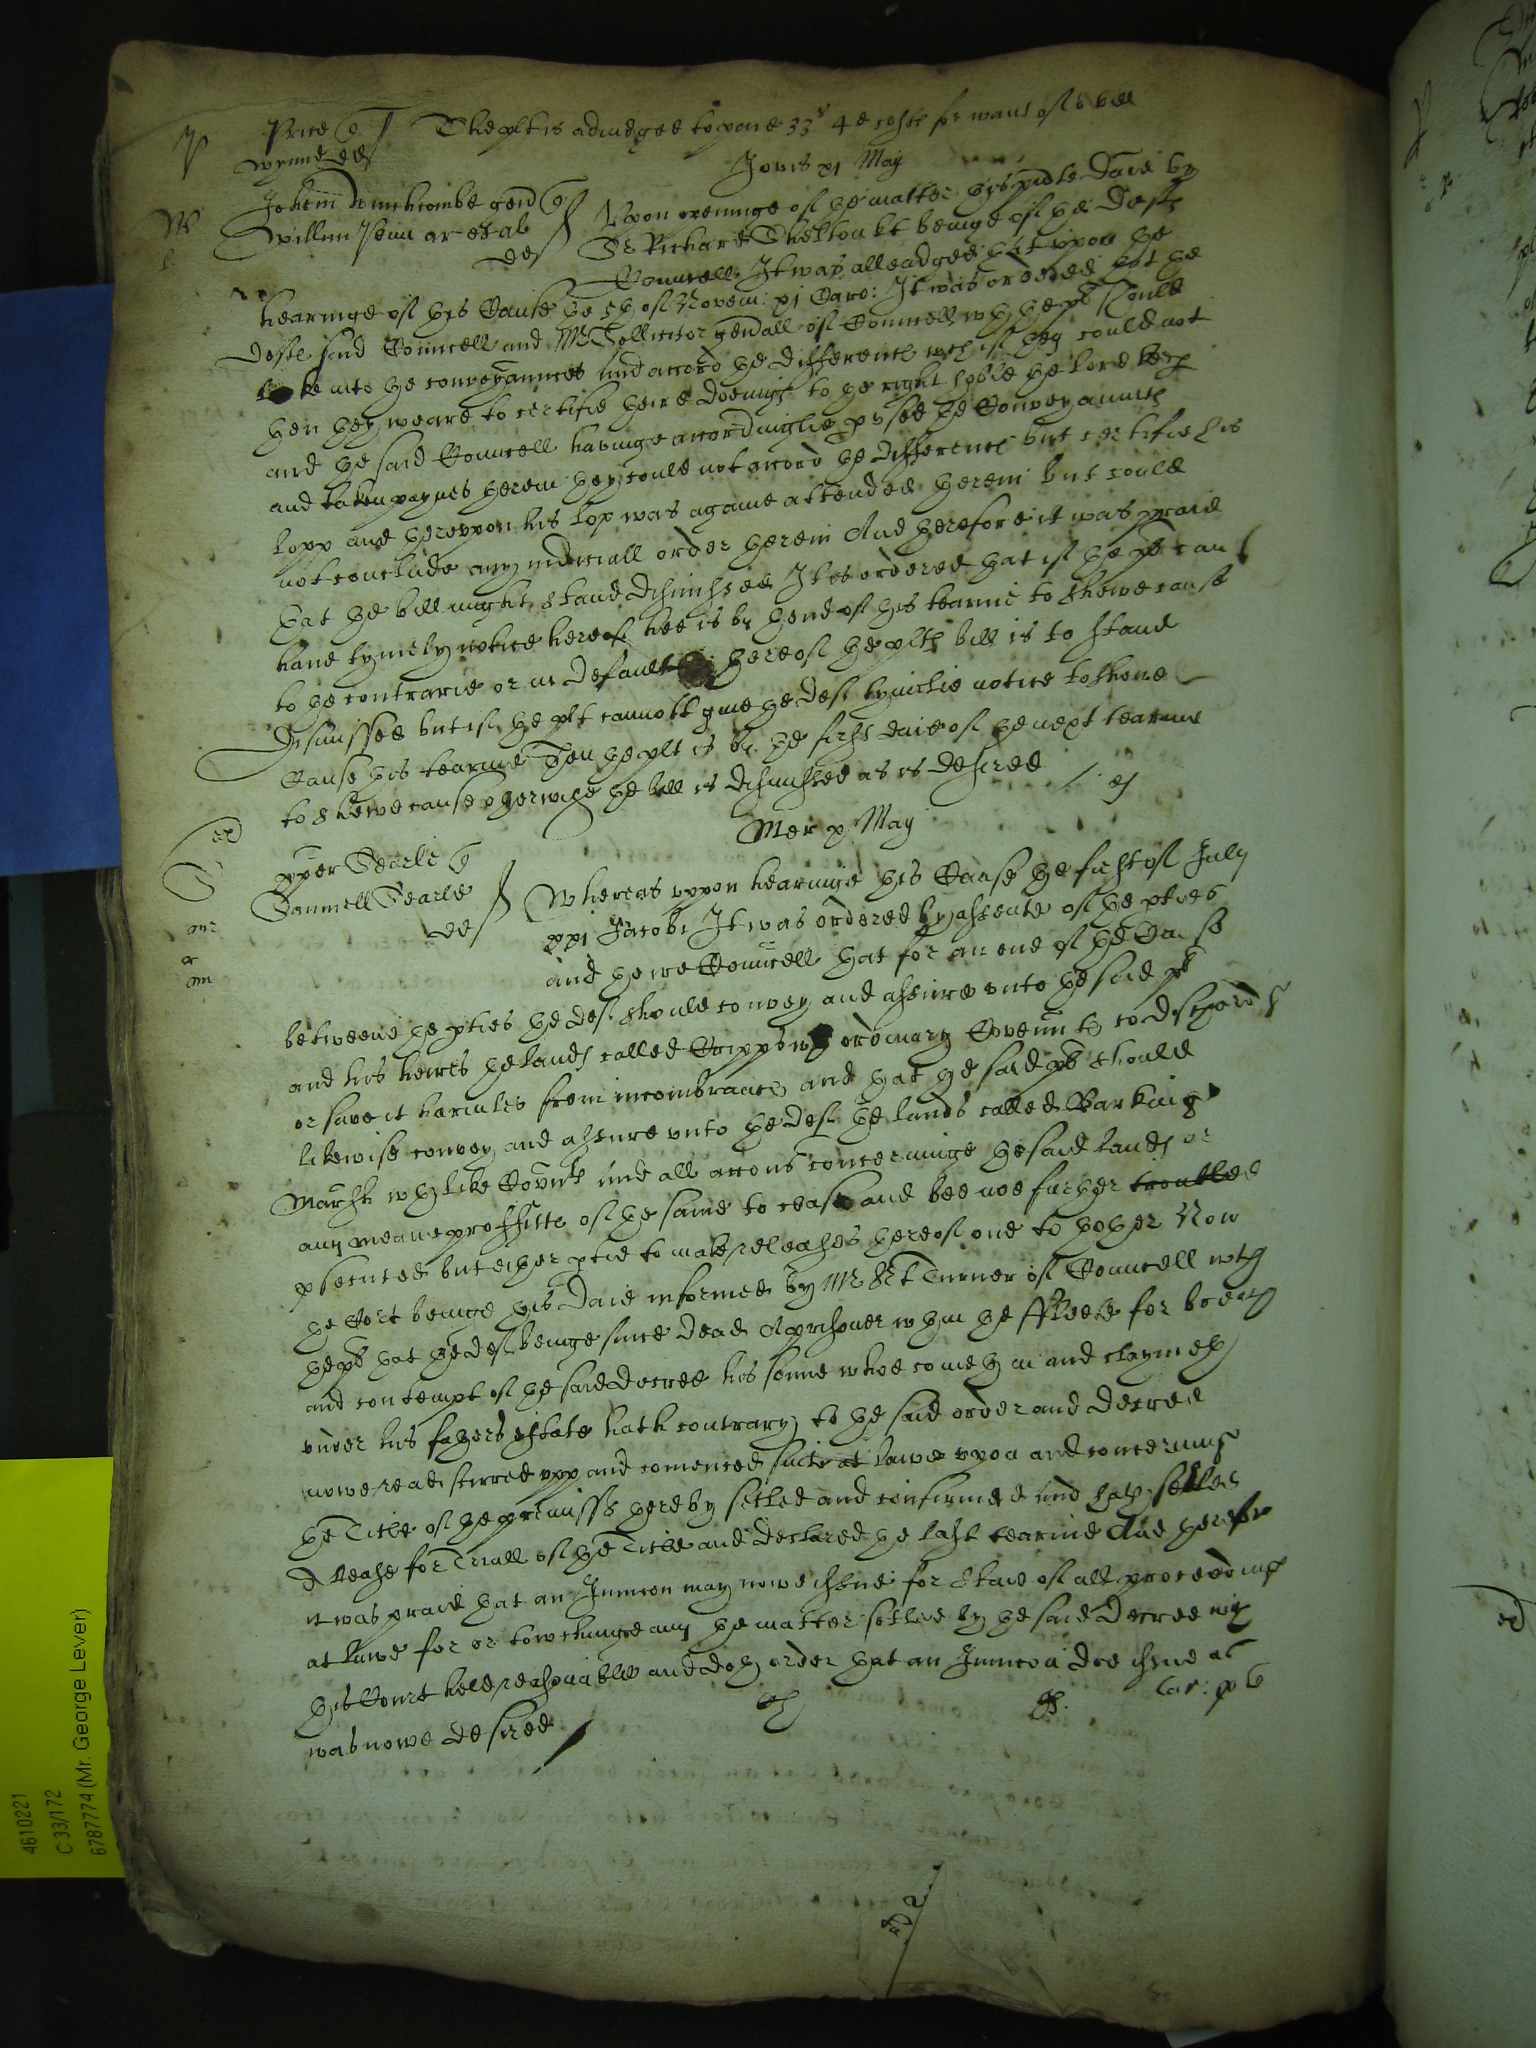 P Price q The plt is adiudged to paie 33s 4d costs for want of a bill
Wynne def
Jovis xj May
W Johem Winchcombe gen q Upon openinge of the matter this pnte daie by
Willm Penn ar et al Sr Richard Shelton kt beinge of the Defts
def Councell It was alleadged that upon the
hearinge of this Cause the 5th of Novem: pi Caro: It was ordered that the
Defte said Councell and Mr Sollicitor genall of Councell wth the plt should
looke into the conveyannces and accord the differences wch if they could not
then they weare to certifie theire doeings to the right hoble the lord keep
and the said Councell havinge accordinglie pused the Conveyannces
and taken paynes therein they could not accord the differences but certifie his
lopp and thereupon his lopp was againe attended therein but could
not conclude any iudiciall order therein And therefore it was praid
that the bill might stand dismissed It is ordered that if the plt can
have tymely notice hereof hee is by thend of this tearme to shewe cause
to the contrarie or in default thereof the plts bill is to stand
dismissed but if the plt cannott give the deft tymelie notice to shewe
Cause this tearme Then the plt is by the first daie of the next tearme
to shewe cause otherwise the bill is dismissed as is desired
Mer x May
Searle q
S Samuell Searle Whereas uppon hearinge this Cause the first of July
def xxi Jacobi It was ordered by assente of the pties
and theire Councell that for an end of the Cause
betweene the pties the deft should convey and assure unto the said plt
and his heires the lands called wth ordinary Covennts to discharge
or save it harmles from incombrances and that the said plt should
likewise convey and assure unto the deft the lands called Barkinge
Marsh wth like Covnts And all accons concerninge the said lands or
any meane proffitts of the same to cease and bee noe further troubled
psecuted but either ptie to make releases thereof one to thother Now
the Cort beinge this daie informed by Mr Turner of Councell wth
the plt that the deft beinge since dead A prisoner wthin the Fleete for breach
and contempt of the said decree his sonne whoe cometh in and claymeth
under his fathers estate hath contrary to the said order and decree
nowe stirred upp and comenced suite at lawe upon and concerninge
the Title of the premisses thereby setled and confirmed And hath sealed
a lease for Triall of the Title and declared the last tearme And therefore
it was praid that an Iniuncon may nowe issue for staie of all proceedings
at lawe for or towchinge any the matter setled by the said decree wch
this Court held reasonable and doth order that an Iniuncon doe issue as
was nowe desired
4610221
C 33/172
6787774 (Mr. George Lever)